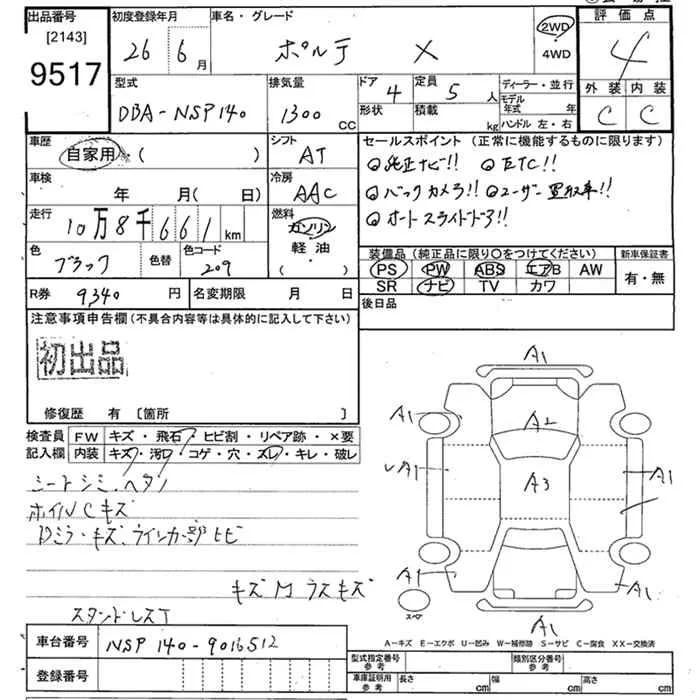 出品番号
[2143]
9517
初度登録年月
26 6月
車名・グレード
ポルテ X
2WD
・
4WD
評価点
4
外装 内装
C C
型式
DBA-NSP140
排気量
1300 CC
ドア
4
定員
5人
形状
積載
kg
ディーラー・並行
モデル年式 年
ハンドル 左・右
車歴
自家用 ( )
シフト
AT
車検
年 月( 日)
冷房
AAC
走行
10万8千661km
燃料
ガソリン
軽油
( )
色
ブラック
色替
色コード
209
セールスポイント(正常に機能するものに限ります)
◎純正ナビ!! ◎ETC!!
◎バックカメラ!! ◎ユーザー買取車!!
◎オートスライドドア!!
装備品(純正品に限り○をつけてください)
PS PW ABS エアB AW
SR ナビ TV カワ
新車保証書
有・無
R券
9,340円
名変期限 月 日
後日品
注意事項申告欄(不具合内容等は具体的に記入して下さい)
初出品
修復歴 有 [箇所 ]
検査員 FW キズ・飛石・ヒビ割・リペア跡・×要
記入欄 内装 キズ・汚れ・コゲ・穴・スレ・キレ・破レ
シートシミ、ヘタリ
ホイルCキズ
Dミラーキズ、ウインカー部ヒビ
キズM ラスキズ
スタンドレスT
A1
A1
A2
A1
A1
A3
A1
A1
A1
スペア
A1
A-キズ E-エクボ U-凹み W-補修跡 S-サビ C-腐食 XX-交換済
車台番号
NSP140-9016512
登録番号
型式指定番号
参考
類別区分番号
参考
車庫証明用
参考
長さ cm
幅 cm
高さ cm